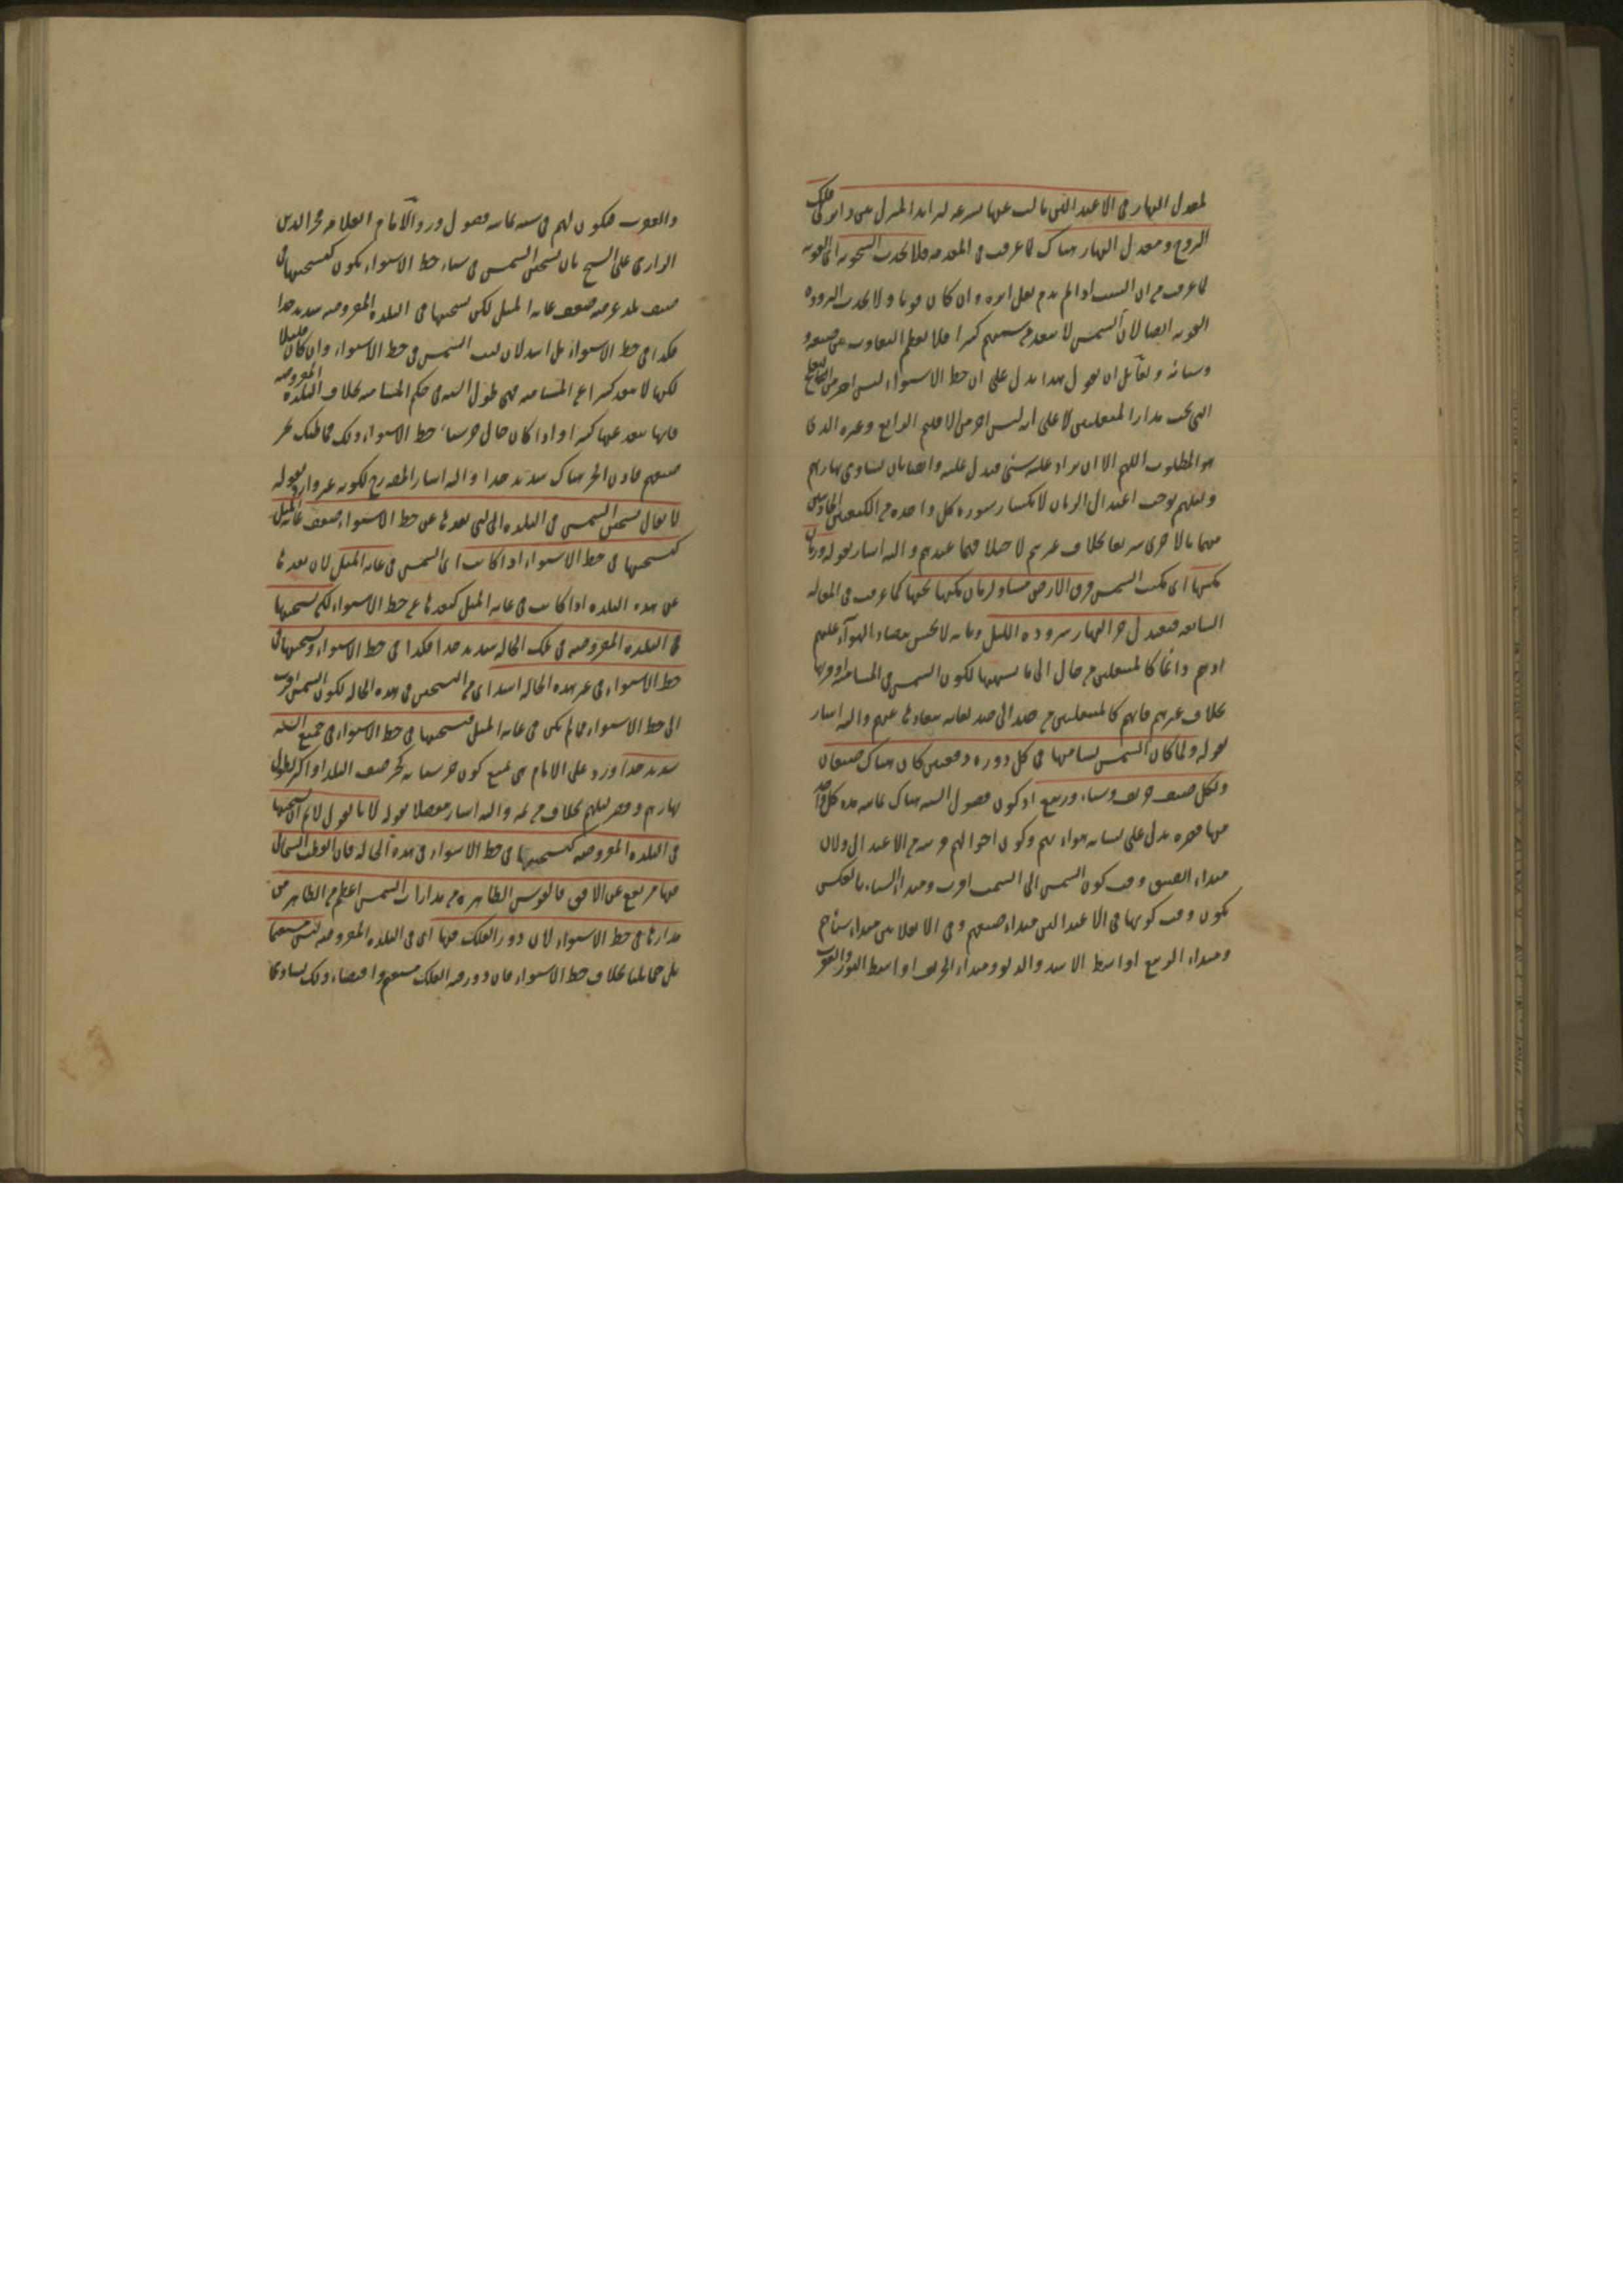 لمعدل النهار فى الاعتدالين مالت عنها بسرعة لتزايد الميل بين دايرتى فلك
البروج ومعدل النهار هناك لما عرفت فى المقدمة فلا تحدث السخونة اى القوية
لما عرفت من ان السبب اذا لم يدم يقل اثره وان كان قويا ولا تحدث البرودة
القوية ايضا لان الشمس لا تبعد عن سمتهم كثيرا فلا يعظم التفاوت بين صيفه و
وشتائه ولقائل ان يقول هذا يدل على ان خط الاستواء ليس احر من البقاع
التى تحت مدار المنقلبين لا على انه ليس احر من الاقليم الرابع وغيره الذى
هو المطلوب اللهم الا ان يراد عليه شئ فيدل عليه وايضا بان تساوى نهارهم
وليلهم يوجب اعتدال الزمان لانكسار سورة كل واحدة من الكيفيتين الحادثتين
منهما بالاخرى سريعا بخلاف غيرهم لاختلافهما عندهم واليه اشار بقوله وزمان
مكثها اى مكث الشمس فوق الارض مساو لزمان مكثها تحتها كما عرفت فى المقالة
السابعة فيعتدل حر النهار ببرودة الليل وبانه لا يحس بتضاد الهواء عليهم
اذ هم دائما كالمنتقلين من حال الى ما يشبهها لكون الشمس فى المسامتة او قربها
بخلاف غيرهم فانهم كالمنتقلين من ضد الى ضد لغاية بعادها عنهم واليه اشار
بقوله ولما كان الشمس تسامتها فى كل دورة دفعتين كان هناك صيفان
ولكل صيف خريف وشتاء وربيع اذ كون فصول السنة هناك ثمانية مدة كل واحد
منها قصيرة يدل على تشابه هواءهم وكون احوالهم قريبة من الاعتدال ولان
مبداء الصيف وقت كون الشمس الى السمت اقرب ومبداء الشتاء بالعكس
يكون وقت كونها فى الاعتدالين مبداء صيفهم وفى الانقلابين مبداء شتائهم
ومبداء الربيع اواسط الاسد والدلو ومبداء الخريف اواسط الثور والعقرب
والعقرب فيكون لهم فى سنة ثمانية فصول ورد الامام العلامة فخر الدين
الرازى على الشيخ بان تسخين الشمس فى شتاء خط الاستواء يكون كتسخينها فى
صيف بلد عرضه ضعف غاية الميل لكن تسخينها فى البلدة المفروضة شديد جدا
فكذا فى خط الاستواء بل اشد لان لبث الشمس فى خط الاستواء وان كان قليلا
لكنها لا تبعد كثيرا عن المسامتة فهى طول السنة فى حكم المسامتة بخلاف البلدة المفروضة
فانها تبعد عنها كثيرا واذا كان حال حر شتاء خط الاستواء ذلك فما ظنك بحر
صيفهم فاذن الحر هناك شديد جدا واليه اشار المص مع لكونه غير وارد بقوله
لا يقال تسخين الشمس فى البلدة التى بعدها عن خط الاستواء ضعف غاية الميل
كتسخينها فى خط الاستواء اذا كانت اى الشمس فى غاية الميل لان بعدها
عن هذه البلدة اذا كانت فى غاية الميل كبعدها عن خط الاستواء لكن تسخينها
فى البلدة المفروضة فى تلك الحالة شديد جدا فكذا فى خط الاستواء وتسخينها فى
خط الاستواء فى غير هذه الحالة اشد اى من التسخين فى هذه الحالة لكون الشمس اقرب
الى خط الاستواء ما لم تكن فى غاية الميل فتسخينها فى خط الاستواء فى جميع السنة
شديد جدا ورد على الامام بمنع كون حر شتائه كحر صيف البلد اذ اكثر لطول
نهارهم وقصر ليلهم بخلاف من ثمه واليه اشار مفصلا بقوله لانا نقول لانم ان تسخينها
فى البلدة المفروضة كتسخينها فى خط الاستواء فى هذه الحالة فان القطب الشمالى
فيها مرتفع عن الافق فالقوس الظاهرة من مدارات الشمس اعظم من الظاهر من
مداراتها فى خط الاستواء لان دور الفلك فيها اى فى البلدة المفروضة ليس مستقيما
بل حمايليا بخلاف خط الاستواء فان دور فيه الفلك مستقيم واقتضاء ذلك تساوى